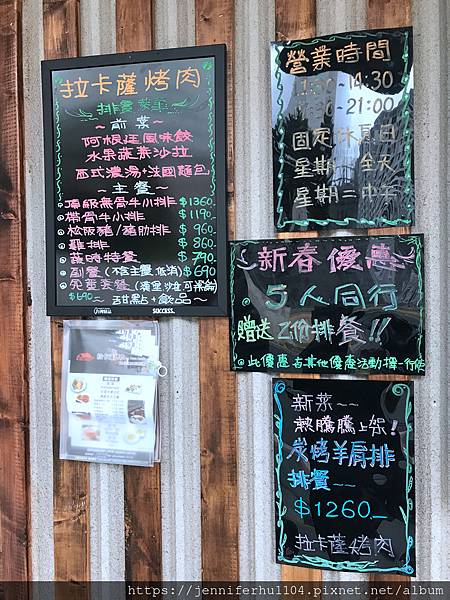 拉卡薩烤肉
排餐菜單
~前菜~
阿根廷風味餃
水果蔬菜沙拉
西式濃湯+法國麵包
~主餐~
頂級無骨牛小排 $1360
帶骨牛小排 $1190
松阪豬/豬肋排 $960
雞排 $860
蔬時特餐 $790
副餐(不含主餐,低消) $690
兒童套餐
$690 ~甜點+飲品~
SUCCESS.
營業時間
11:00~14:30
21:00
固定休息日
星期 全天
星期二中午
新春優惠
5人同行
贈送乙份排餐!!
@此優惠與其他優惠活動擇一行使
新菜~
熱騰騰上架!
炭烤羊肩排
排餐~~
$1260_
拉卡薩烤肉
https://jenniferhu1104.pixnet.net/album